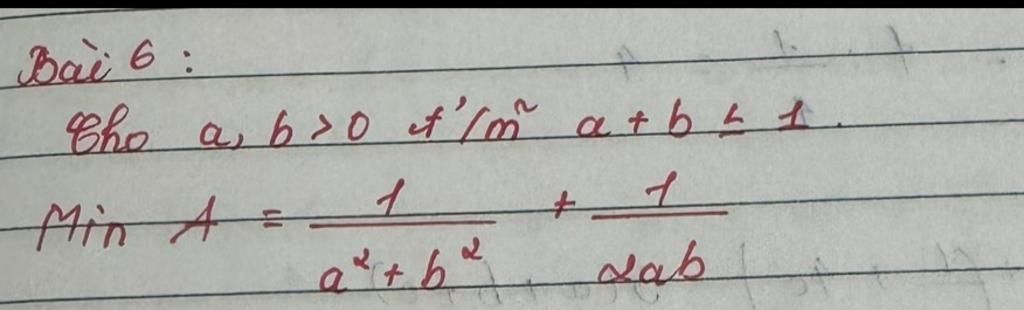 Bài 6 :
Cho a, b > 0 t/m a + b ≤ 1.
Min A = 1/(a² + b²) + 1/(2ab)